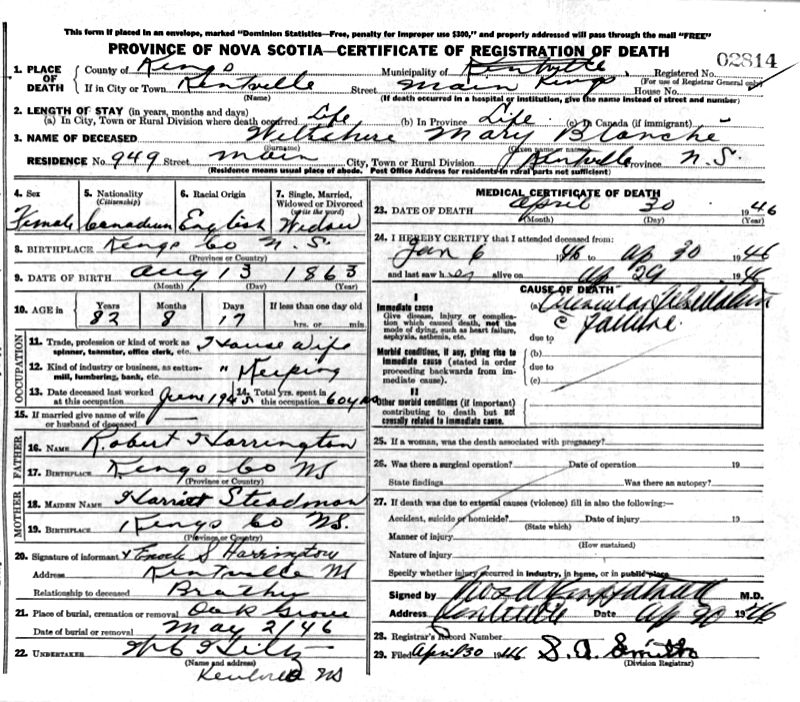 This form if placed in an envelope, marked "Dominion Statistics—Free, penalty for improper use $300," and properly addressed will pass through the mail "FREE"
PROVINCE OF NOVA SCOTIA—CERTIFICATE OF REGISTRATION OF DEATH
02814
1. PLACE OF DEATH County of Kings Municipality of Kentville Kings Registered No.
(For use of Registrar General only)
If in City or Town Kentville Street Main House No.
(Name) (If death occurred in a hospital or institution, give the name instead of street and number)
2. LENGTH OF STAY (in years, months and days)
(a) In City, Town or Rural Division where death occurred Life (b) In Province Life (c) In Canada (if immigrant)
3. NAME OF DECEASED Wiltshire Mary Blanche
(Surname) (Given name or names)
RESIDENCE No. 949 Street Main City, Town or Rural Division Kentville Province N.S.
(Residence means usual place of abode. Post Office Address for residents in rural parts not sufficient)
4. Sex 5. Nationality 6. Racial Origin 7. Single, Married, Widowed or Divorced
(Citizenship) (write the word)
Female Canadian English Widow
8. BIRTHPLACE Kings Co N.S.
(Province or Country)
9. DATE OF BIRTH Aug 13 1863
(Month) (Day) (Year)
10. AGE in Years Months Days If less than one day old
82 8 17 hrs. or min.
OCCUPATION
11. Trade, profession or kind of work as spinner, teamster, office clerk, etc. House Wife
12. Kind of industry or business, as cotton-mill, lumbering, bank, etc. " Keeping
13. Date deceased last worked at this occupation June 1945 14. Total yrs. spent in this occupation 60 yrs
15. If married give name of wife or husband of deceased
FATHER
16. NAME Robert Harrington
17. BIRTHPLACE Kings Co NS
(Province or Country)
MOTHER
18. MAIDEN NAME Harriet Steadman
19. BIRTHPLACE Kings Co NS.
(Province or Country)
20. Signature of informant x Enoch S Harrington
Address Kentville NS
Relationship to deceased Brother
21. Place of burial, cremation or removal Oak Grove
Date of burial or removal May 2/46
22. UNDERTAKER
(Name and address)
Kentville NS
MEDICAL CERTIFICATE OF DEATH
23. DATE OF DEATH April 30 1946
(Month) (Day) (Year)
24. I HEREBY CERTIFY that I attended deceased from:
Jan 6 1946 to Ap 30 1946
and last saw her alive on Ap 29 1946
CAUSE OF DEATH
I
Immediate cause
Give disease, injury or complication which caused death, not the mode of dying, such as heart failure, asphyxia, asthenia, etc.
(a) Auricular Fibrillation
c Failure.
due to
Morbid conditions, if any, giving rise to immediate cause (stated in order proceeding backwards from immediate cause).
(b)
due to
(c)
II
Other morbid conditions (if important) contributing to death but not causally related to immediate cause.
25. If a woman, was the death associated with pregnancy?
26. Was there a surgical operation? Date of operation 19
State findings Was there an autopsy?
27. If death was due to external causes (violence) fill in also the following:—
Accident, suicide or homicide? Date of injury 19
(State which)
Manner of injury
(How sustained)
Nature of injury
Specify whether injury occurred in industry, in home, or in public place
Signed by M.D.
Address Kentville Date Ap 30 1946
28. Registrar's Record Number
29. Filed April 30 1946 S. A. Smith
(Division Registrar)